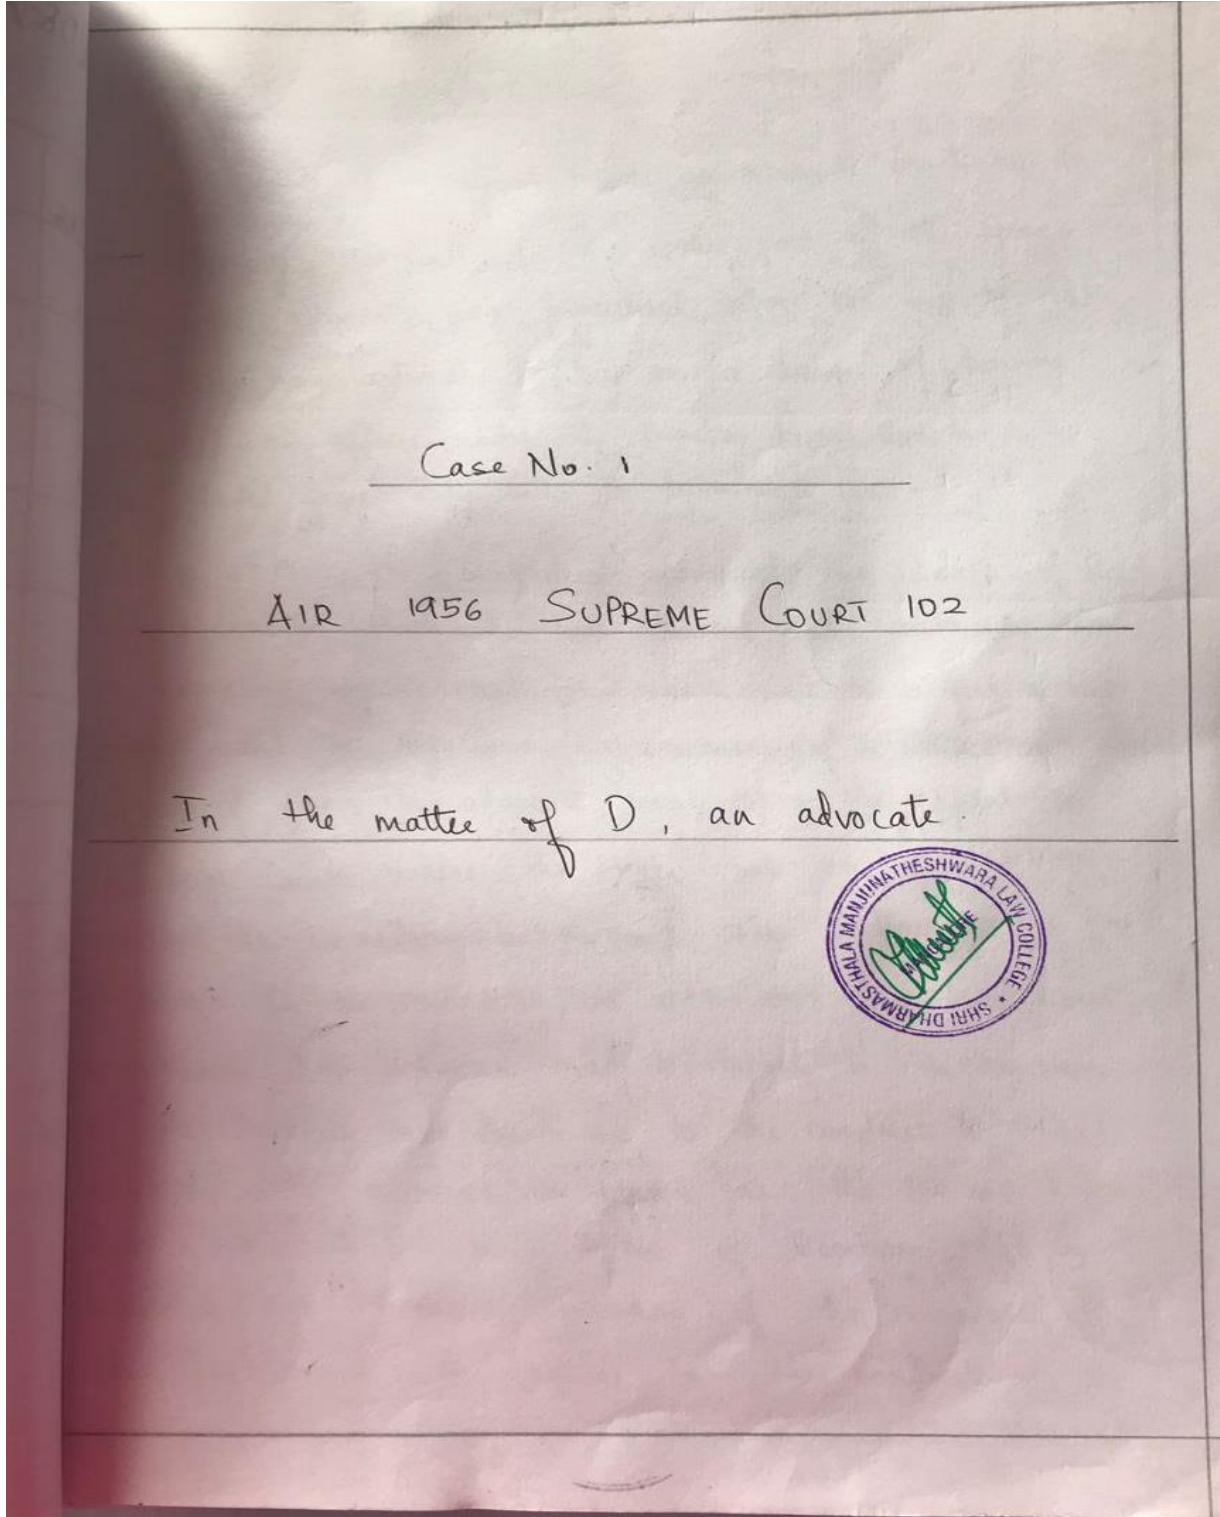 Case No. 1
AIR 1956 SUPREME COURT 102
In the matter of D, an advocate.
SHRI DHARMASTHALA MANJUNATHESHWARA LAW COLLEGE *